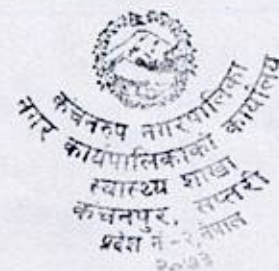 कंचनरुप नगरपालिका
नगर कार्यपालिकाको कार्यालय
स्वास्थ्य शाखा
कंचनपुर, सप्तरी
प्रदेश नं -२, नेपाल
२०७३